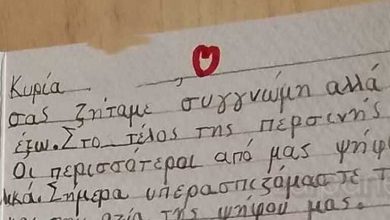 Κυρία
σας ζητάμε συγγνώμη αλλά
έξω. Στο τέλος της περσινής
Οι περισσότεροι από μας ψήφ
ικά. Σήμερα υπερασπιζόμαστε τ
αξία της ψήφου μας.